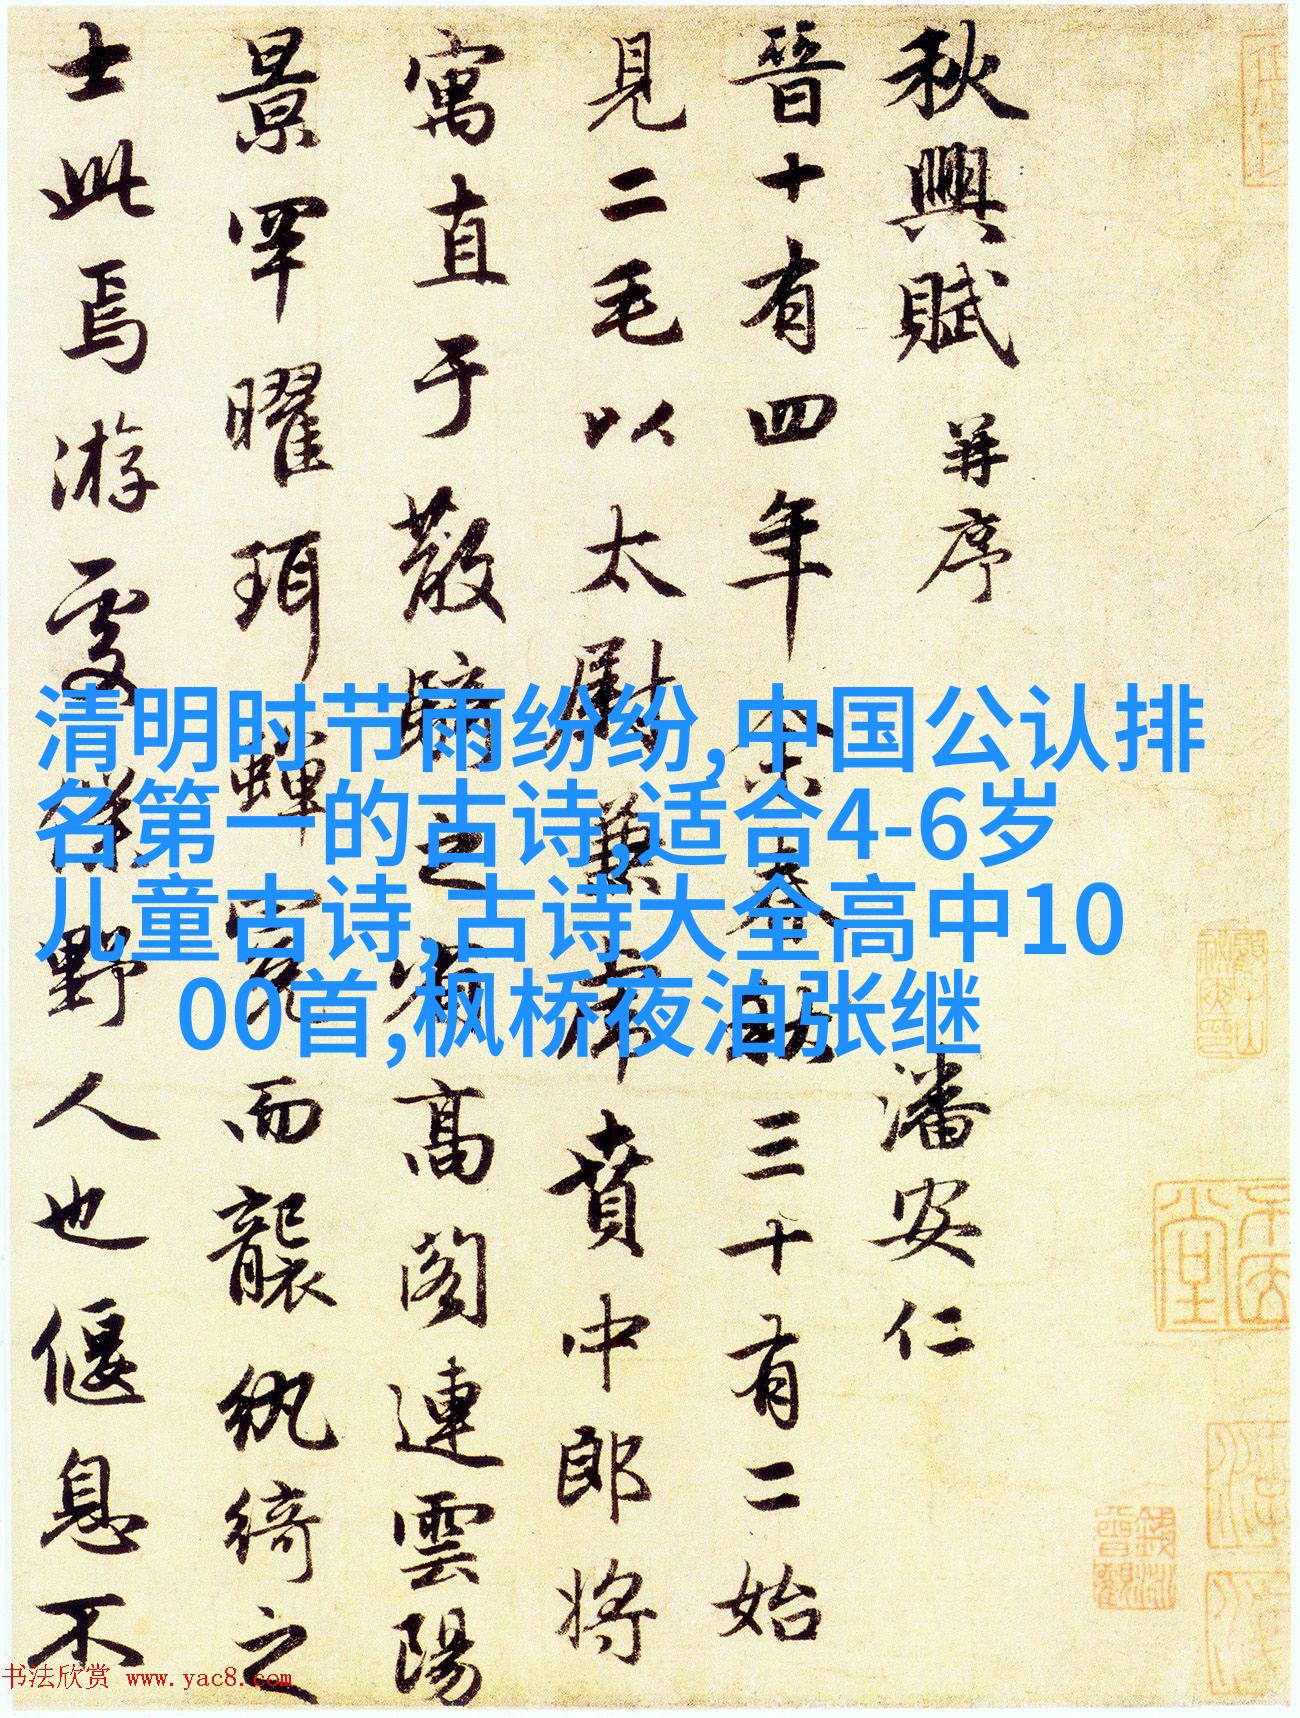 秋興賦 并序 潘安仁
晉十有四年余春秋三十有二始
見二毛以太尉兼虎賁中郎将
寓直于散騎之省高阁連雲陽
景罕曜珥蟬冕而襲紈綺之
士此焉游處僕野人也偃息不
清明时节雨纷纷,中国公认排
名第一的古诗,适合4-6岁
儿童古诗,古诗大全高中10
00首,枫桥夜泊张继
书法欣赏 www.yac8.com